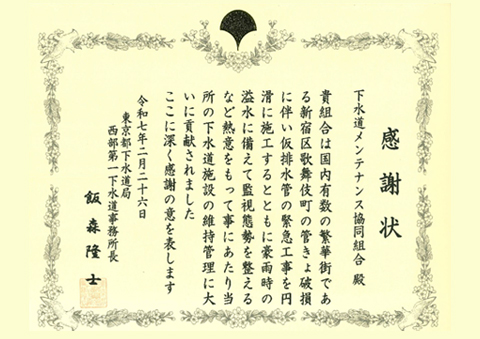 感謝状
下水道メンテナンス協同組合 殿
貴組合は国内有数の繁華街であ
る新宿区歌舞伎町の管きょ破損
に伴い仮排水管の緊急工事を円
滑に施工するとともに豪雨時の
溢水に備えて監視態勢を整える
など熱意をもって事にあたり当
所の下水道施設の維持管理に大
いに貢献されました
ここに深く感謝の意を表します
令和七年二月二十六日
東京都下水道局
西部第一下水道事務所長
飯森隆士